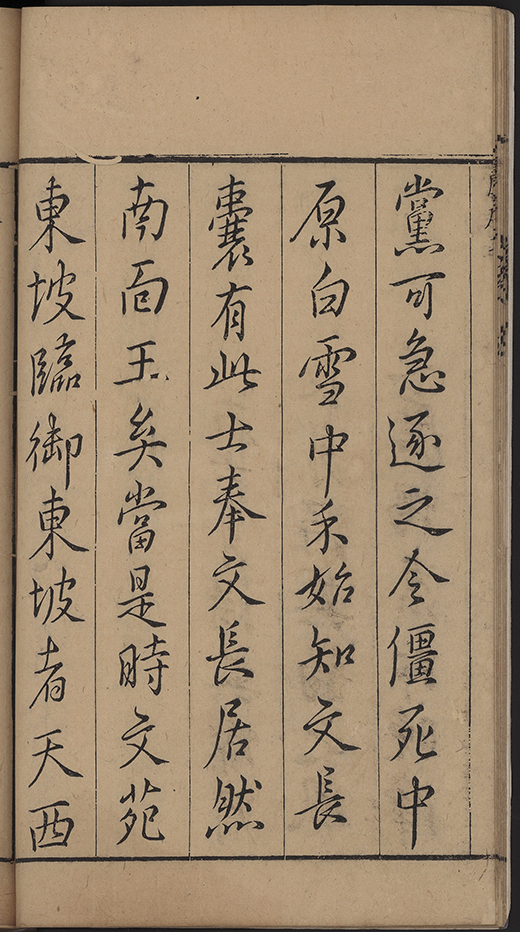 黨可急逐之令僵死中
原白雪中禾始知文長
囊有此士奉文長居然
南面王矣當是時文苑
東坡臨御東坡者天西